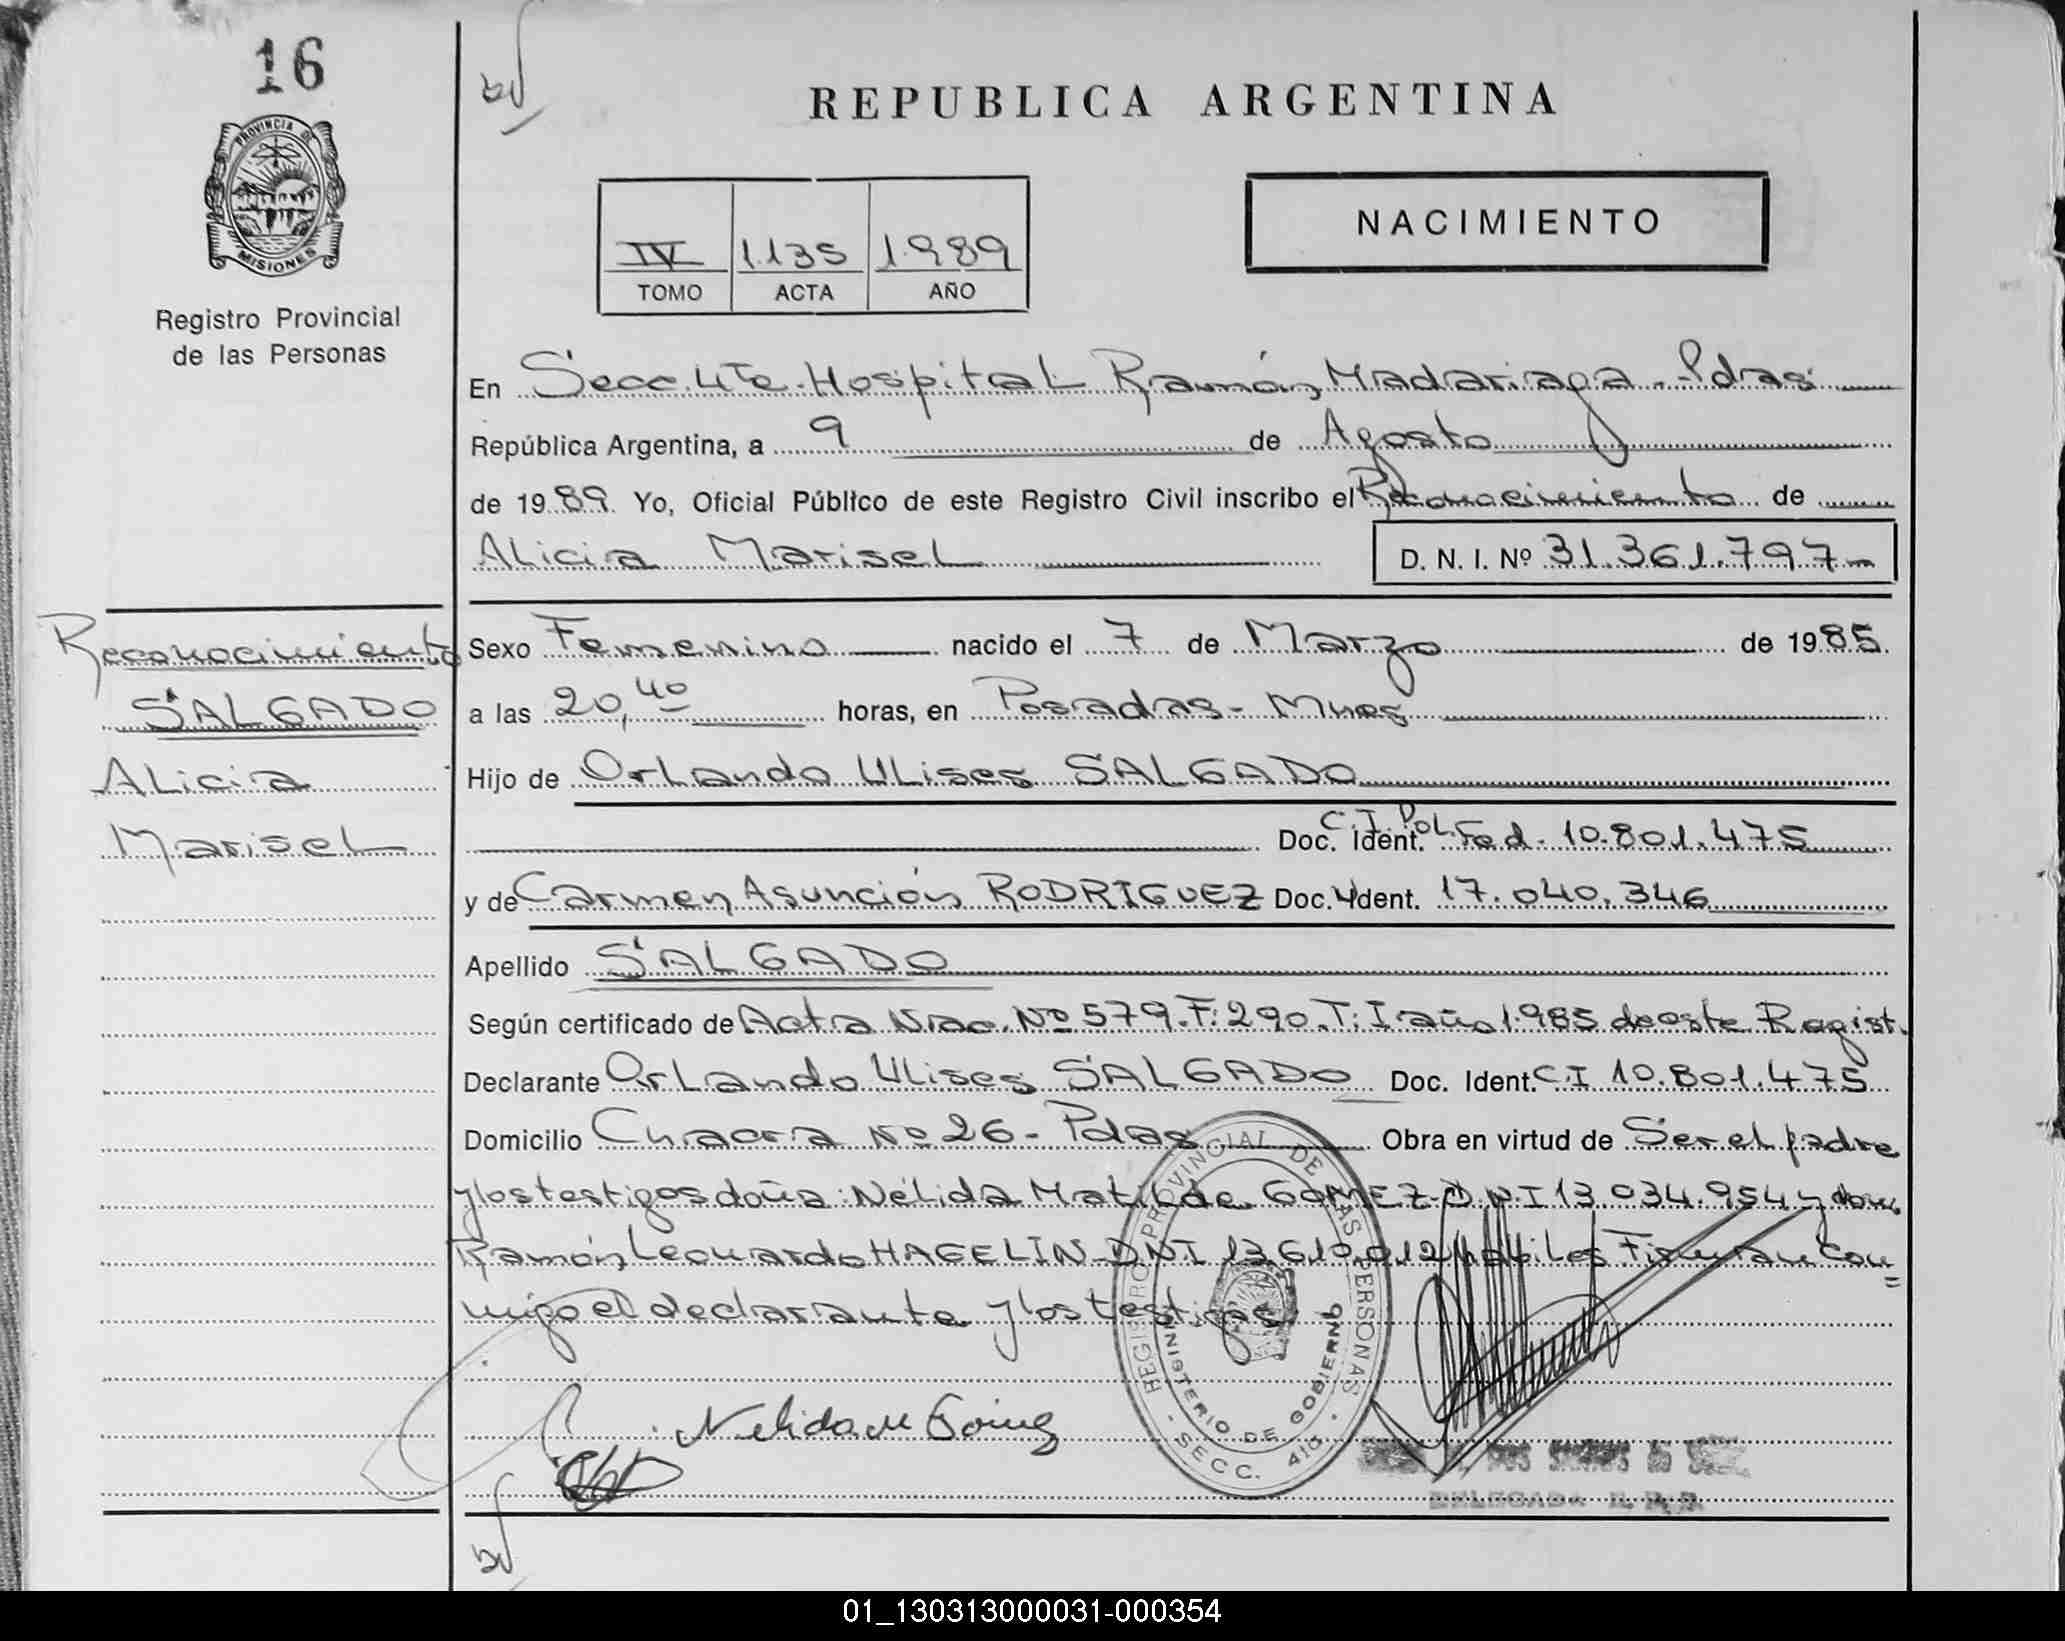 16
REPUBLICA ARGENTINA
PROVINCIA DE MISIONES
Registro Provincial
de las Personas
IV 1135 1989
TOMO ACTA AÑO
NACIMIENTO
En Secc. 4ta. Hospital Ramón Madariaga. Pdas
República Argentina, a 9 de Agosto
de 1989. Yo, Oficial Público de este Registro Civil inscribo el Reconocimiento de
Alicia Marisel
D. N. I. Nº 31.361.797
Reconocimiento
SALGADO
Alicia
Marisel
Sexo Femenino nacido el 7 de Marzo de 1985.
a las 20,40 horas, en Posadas - Mnes
Hijo de Orlando Ulises SALGADO
Doc. Ident. C.I. Pol. Fed. 10.801.475
y de Carmen Asunción RODRIGUEZ Doc. Ident. 17.040.346
Apellido SALGADO
Según certificado de Acta Nac. Nº 579. F: 290. T: I año 1985 de este Regist.
Declarante Orlando Ulises SALGADO Doc. Ident. C.I 10.801.475
Domicilio Chacra Nº 26 - Pdas Obra en virtud de Ser el padre
y los testigos doña: Nélida Matilde GOMEZ D.N.I 13.034.954 y don
Ramón Leonardo HAGELIN - D.N.I 13.610.012 habiles Firman con=
migo el declarante y los testigos
REGISTRO PROVINCIAL DE LAS PERSONAS
MINISTERIO DE GOBIERNO
SECC. 4ta
Nelida M Gomez
DOS SANTOS
DELEGADA R. P. P.
01_130313000031-000354